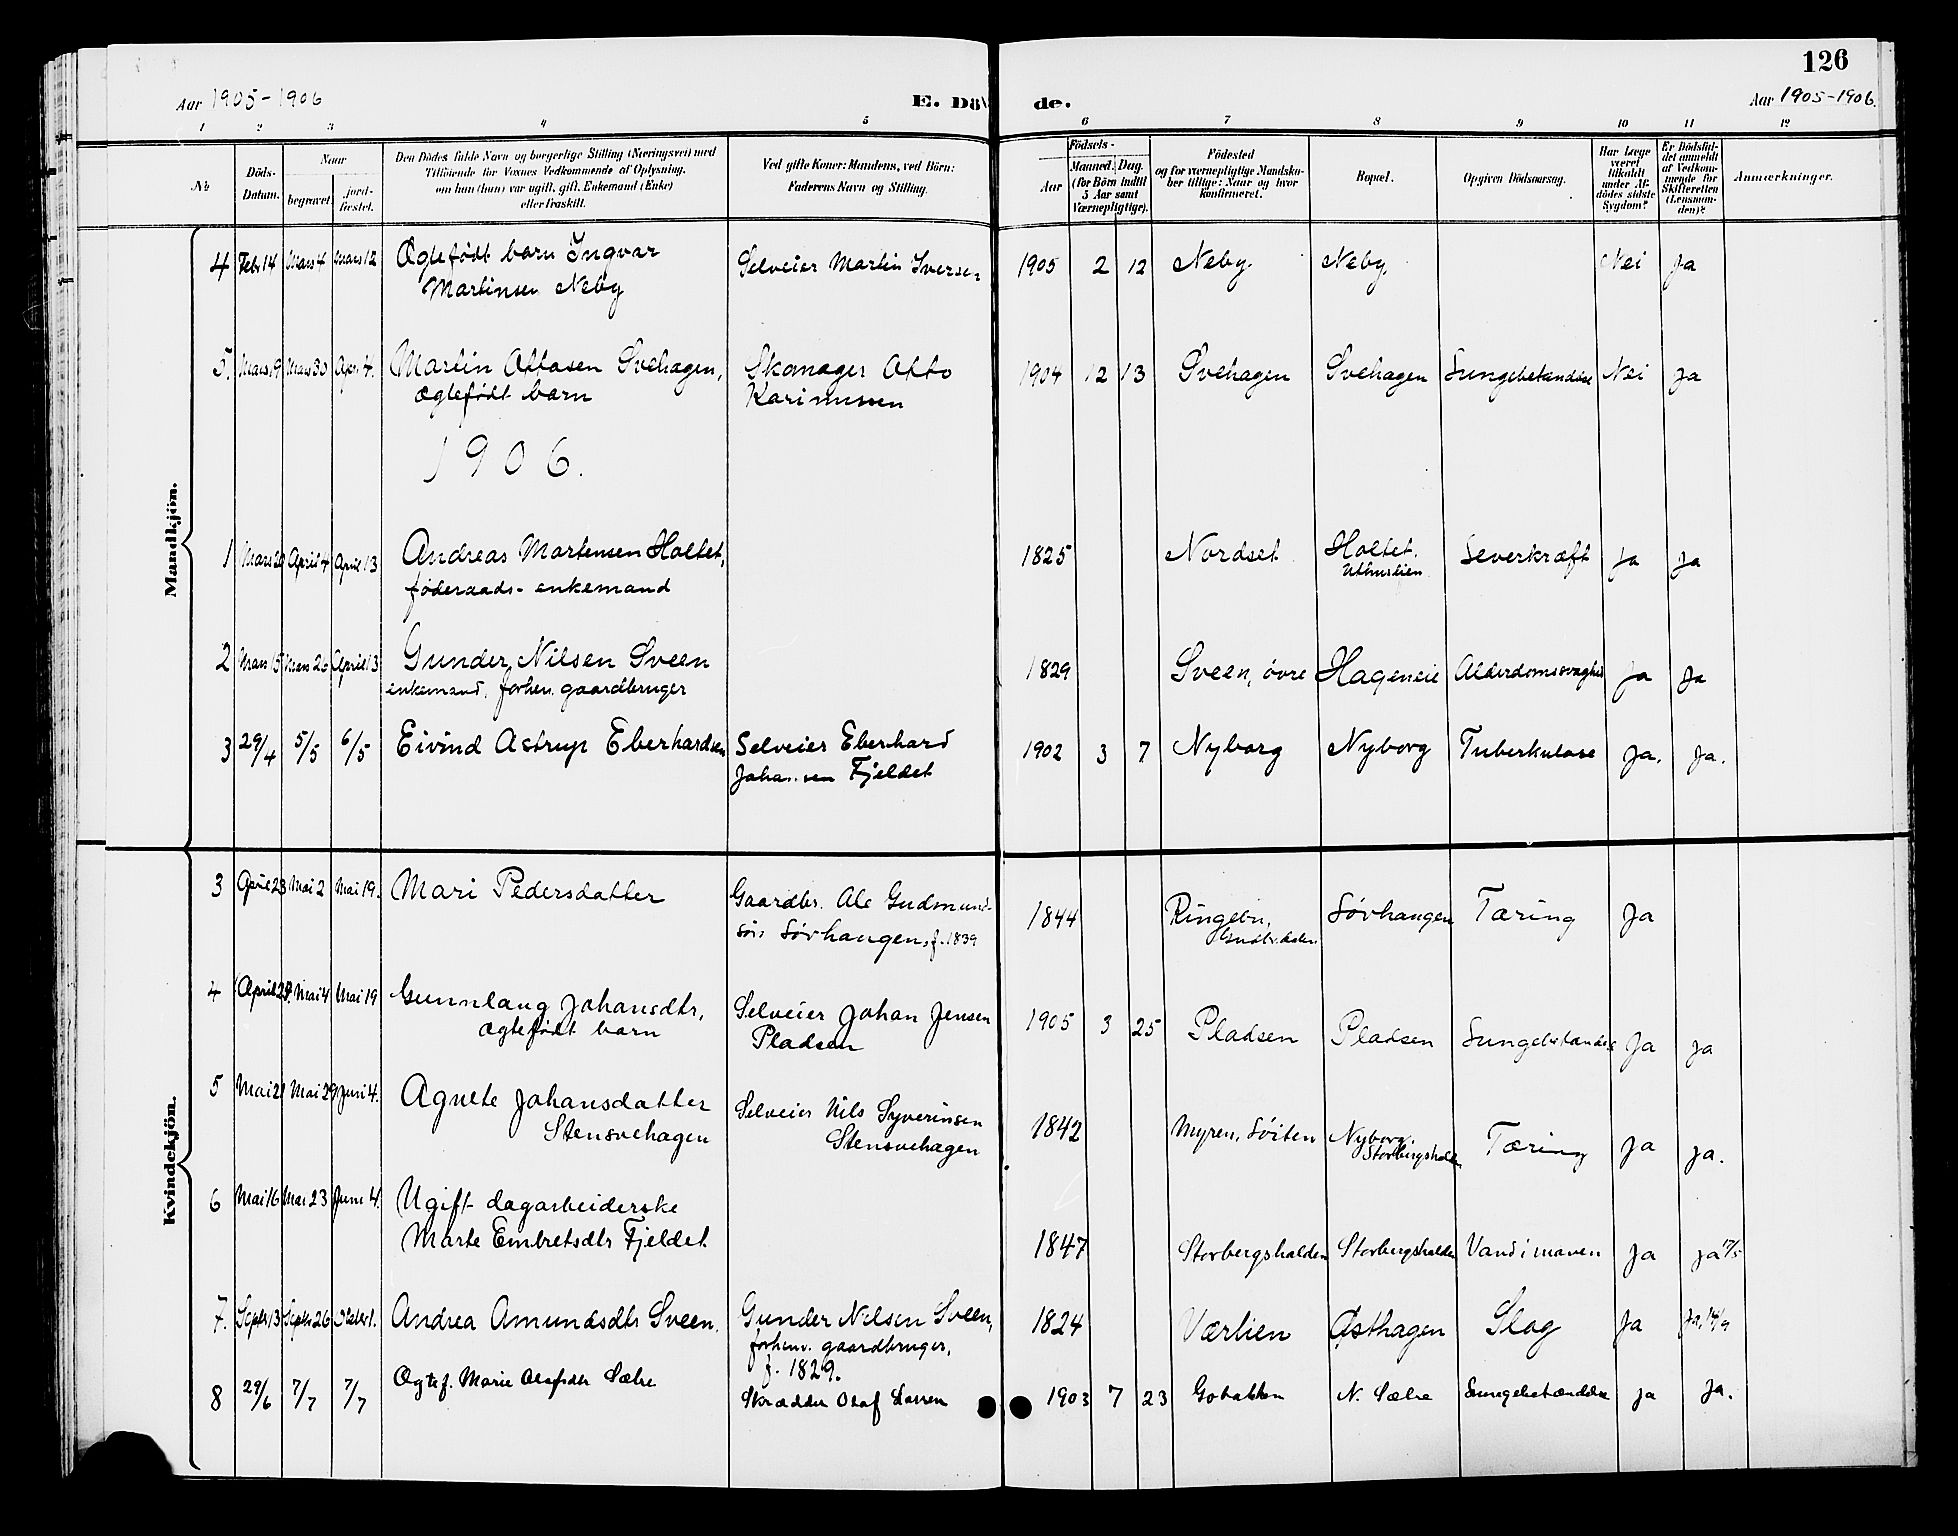 126
Aar 1905-1906
E. Dö
de.
Aar 1905-1906.
1 2 3 4 5 6 7 8 9 10 11 12
No
Döds-Datum.
Naar
begravet.
jord-fæstet.
Den Dödes fulde Navn og borgerlige Stilling (Næringsvei) med
Tilföiende for Voxnes Vedkommende af Oplysning,
om han (hun) var ugift, gift, Enkemand (Enke)
eller fraskilt.
Ved gifte Koner: Mandens, ved Börn:
Faderens Navn og Stilling.
Födsels-
Aar
Maaned. Dag.
(for Börn indtil
5 Aar samt
Værnepligtige).
Födested
og for værnepligtige Mandskaber tillige: Naar og hvor
konfirmeret.
Bopæl.
Opgiven Dödsaarsag.
Har Læge
været
tilkaldt
under Afdödes sidste
Sygdom?
Er Dödsfaldet anmeldt
af Vedkommende for
Skifteretten
(Lensmanden)?
Anmærkninger.
Mandkjön.
4 Febr 14 Mars 4 Mars 12 Ægtefødt barn Ingvar Selveier Martin Iversen 1905 2 12 Neby Neby Nei Ja
Martinsen Neby
5. Mars 19 Mars 30 Apr. 4. Martin Ottosen Svehagen, Skomager Otto 1904 12 13 Svehagen Svehagen Lungebetændelse Nei Ja
ægtefødt barn Karinussen
1906.
1 Mars 20 April 4 April 13 Andreas Mortensen Holtet, 1825 Nordset Holtet. Leverkræft Ja Ja
føderaads- enkemand
2 Mars 15 Mars 26 April 13 Gunder Nilsen Sveen 1829 Sveen, övre Hageneie Alderdomssvaghed Ja Ja
enkemand, forhen. gaardbruger
3 29/4 5/5 6/5 Eivind Astrup Eberhardsen Selveier Eberhard 1902 3 7 Nyborg Nyborg Tuberkulose Ja. Ja.
Johansen Fjeldet
Kvindekjön.
3 April 23 Mai 2 Mai 19. Mari Pedersdatter Gaardbr. Ole Gudmund- 1844 Ringebu, Sörhaugen Tæring Ja
sön Sörhaugen, f. 1839 Gudbr.dalen
4 April 29 Mai 4 Mai 19 Gunnlaug Johansdtr, Selveier Johan Jensen 1905 3 25 Pladsen Pladsen Lungebetændelse Ja Ja
ægtefødt barn Pladsen
5 Mai 21 Mai 29 Juni 4. Agnete Johansdatter Selveier Nils Syverinsen 1842 Myren, Söiten Nyborg, Tæring Ja Ja.
Stensvehagen Stensvehagen Storbergshalden
6 Mai 16 Mai 23 Juni 4. Ugift dagarbeiderske
Marte Embretsdtr Fjeldet 1847 Storbergshalden Storbergshalden Vand i maven Ja Ja 17/5
7. Septbr 13 Septbr 26 Oktober 1. Andrea Amundsdtr Sveen. Gunder Nilsen Sveen, 1824 Værlien Østhagen Slag Ja Ja, 14/9
forhenv. gaardbruger,
f. 1829.
8 29/6 7/7 7/7 Ægtef. Marie Olafsdtr Sætre Skrædder Olaf Larsen 1903 7 23 Gobakken N. Sætre Lungebetændelse Ja Ja.